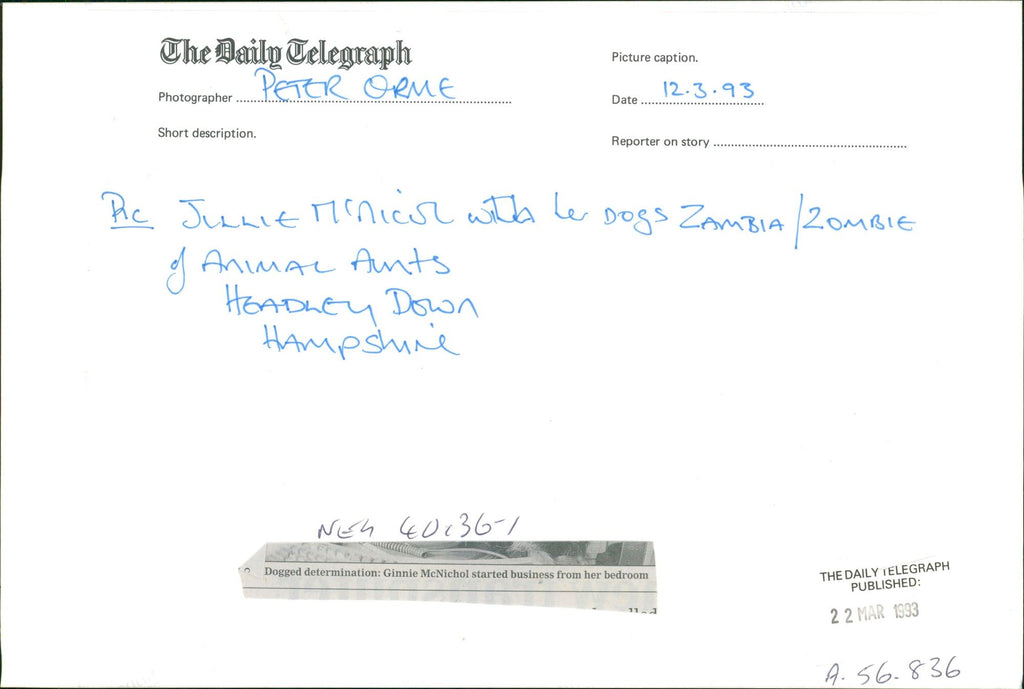 The Daily Telegraph
Picture caption.
Photographer PETER ORME
Date 12.3.93
Short description.
Reporter on story
Pic JULLIE McNICOL with her DOGS ZAMBIA/ZOMBIE
of ANIMAL AUNTS
HEADLEY DOWN
HAMPSHIRE
NEG
Dogged determination: Ginnie McNichol started business from her bedroom
THE DAILY TELEGRAPH
PUBLISHED:
22 MAR 1993
A. 56-836